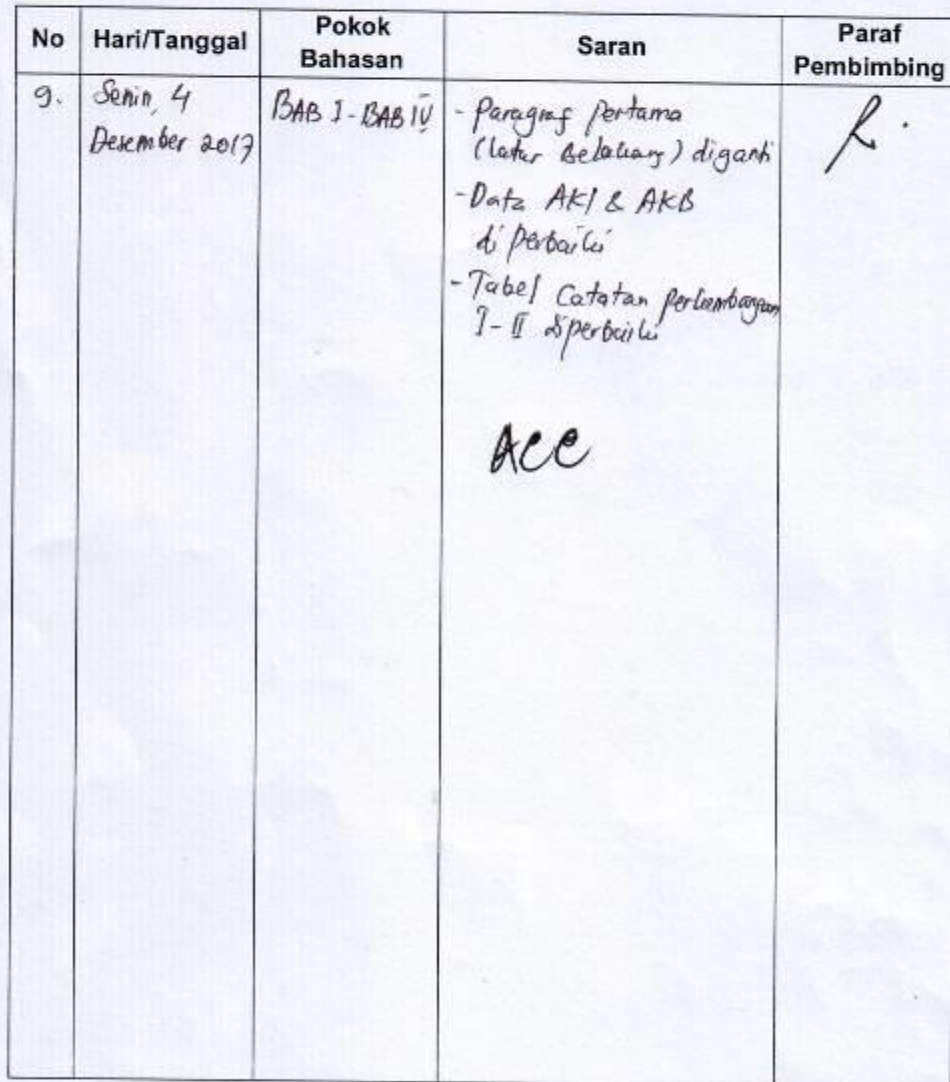 No Hari/Tanggal Pokok Bahasan Saran Paraf Pembimbing
9. Senin, 4 Desember 2017
BAB I - BAB IV
- Paragraf pertama
(latar Belakang) diganti
- Data AKI & AKB
di perbaiki
- Tabel Catatan perkembangan
I - II diperbaiki
ACC